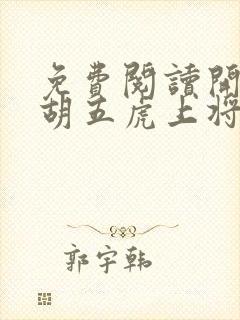 免費閱讀開
胡五虎上將
郭宇韩